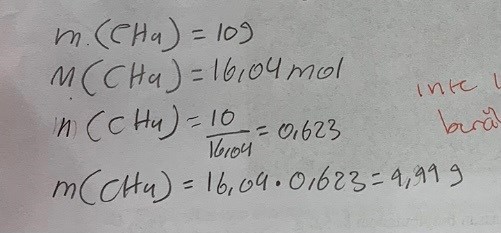 m(CH4) = 10g
M(CH4) = 16,04 mol
n(CH4) = 10/16,04 = 0,623
m(CH4) = 16,04 · 0,623 = 9,99 g
inte